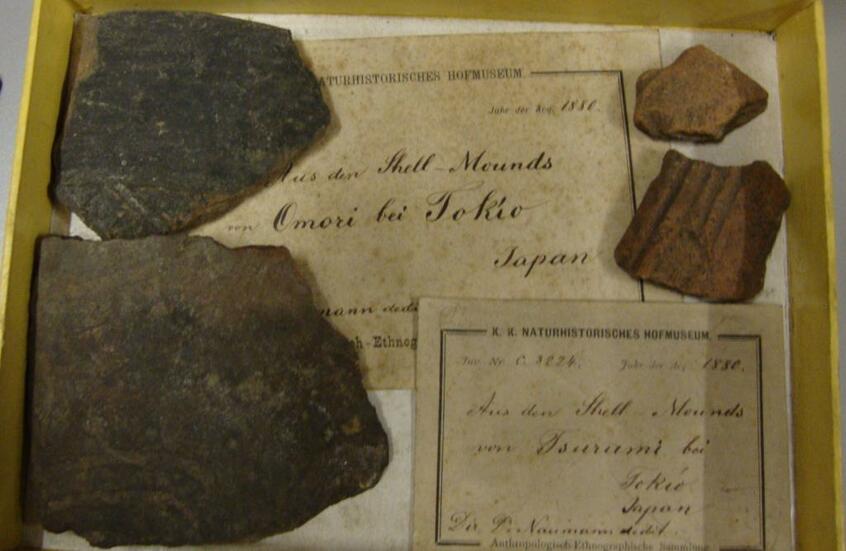 NATURHISTORISCHES HOFMUSEUM.
Jahr der Acq. 1880.
Aus den Shell-Mounds
von Omori bei Tokio
Japan
mann dedi
ch-Ethnog
K. K. NATURHISTORISCHES HOFMUSEUM.
Inv. Nr. C. 3224. Jahr der Acq. 1880.
Aus den Shell-Mounds
von Tsurumi bei
Tokio
Japan
Naumann dedit.
Anthropologisch-Ethnographische Sammlung